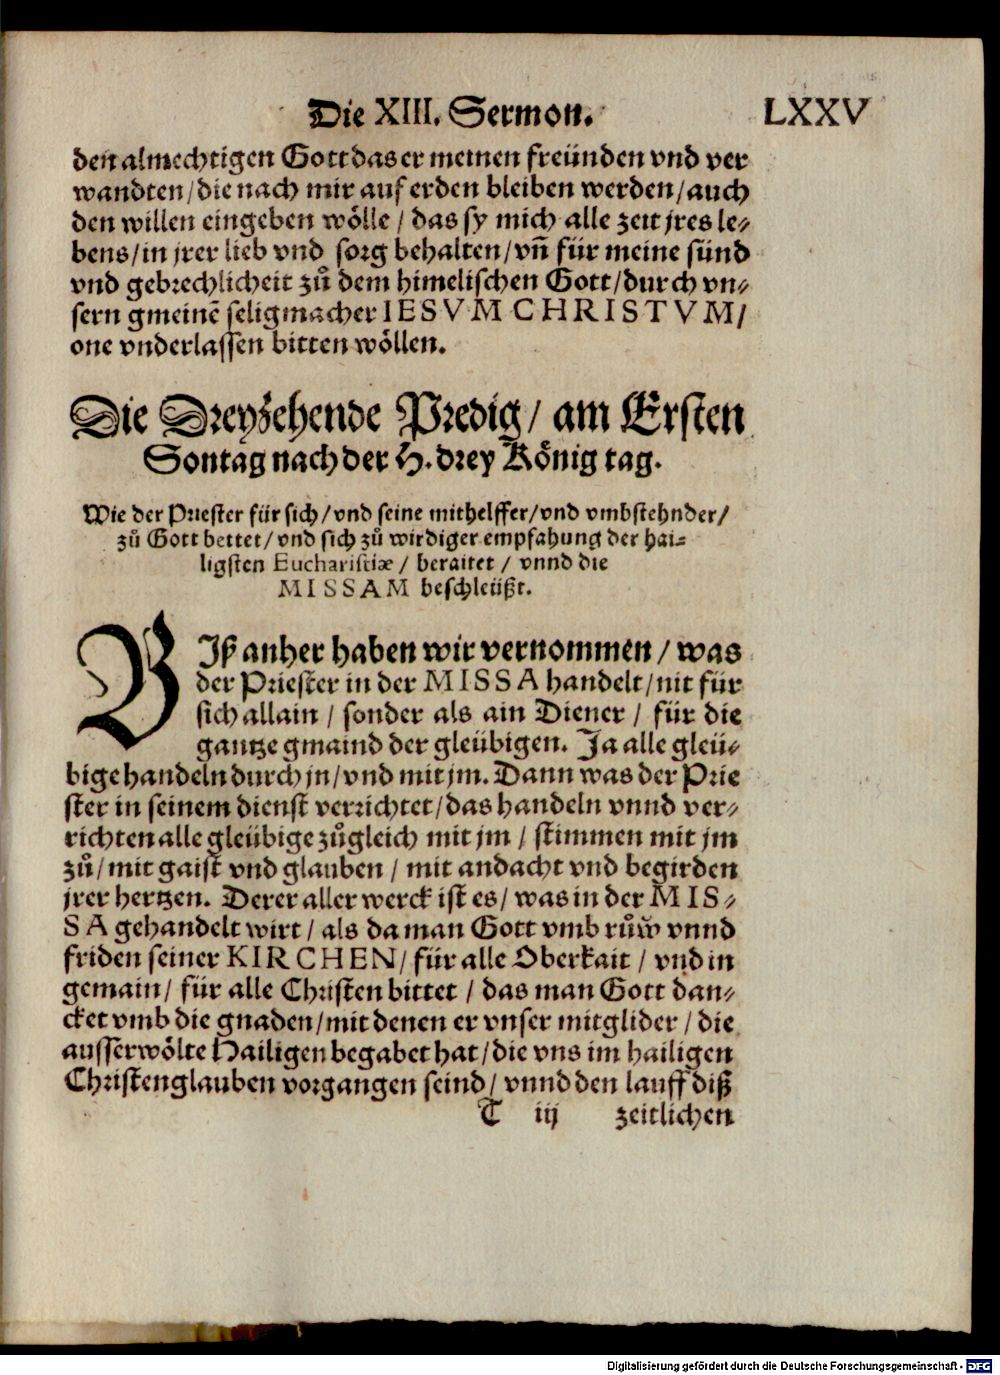 Die XIII. Sermon. LXXV
den almechtigen Gott das er meinen freünden vnd ver
wandten/die nach mir auf erden bleiben werden/auch
den willen eingeben wölle / das sy mich alle zeit jres le⸗
bens/in jrer lieb vnd sorg behalten/vn̄ für meine sünd
vnd gebrechlicheit zů dem himelischen Gott/durch vn⸗
sern gmeinē seligmacher IESVM CHRISTVM/
one vnderlassen bitten wöllen.
Die Dreyzehende Predig/ am Ersten
Sontag nach der H. drey König tag.
Wie der Priester für sich/vnd seine mithelffer/vnd vmbstehnder/
zů Gott bettet/vnd sich zů wirdiger empfahung der hai⸗
ligsten Euchariſtiæ / beraitet / vnnd die
MISSAM beschleüßt.
BIß anher haben wir vernommen / was
der Priester in der MISSA handelt/nit für
sich allain / sonder als ain Diener / für die
gantze gmaind der gleübigen. Ja alle gleü⸗
bige handeln durch jn/vnd mit jm. Dann was der Prie
ster in seinem dienst verrichtet/das handeln vnnd ver⸗
richten alle gleübige zůgleich mit jm / stimmen mit jm
zů/mit gaist vnd glauben / mit andacht vnd begirden
jrer hertzen. Derer aller werck ist es/ was in der MIS⸗
SA gehandelt wirt / als da man Gott vmb růw̌ vnnd
friden seiner KIRCHEN/ für alle Oberkait / vnd in
gemain/ für alle Christen bittet / das man Gott dan⸗
cket vmb die gnaden/mit denen er vnser mitglider / die
ausserwölte Hailigen begabet hat/die vns im hailigen
Christenglauben vorgangen seind/ vnnd den lauff diß
T iij zeitlichen
Digitalisierung gefördert durch die Deutsche Forschungsgemeinschaft - DFG